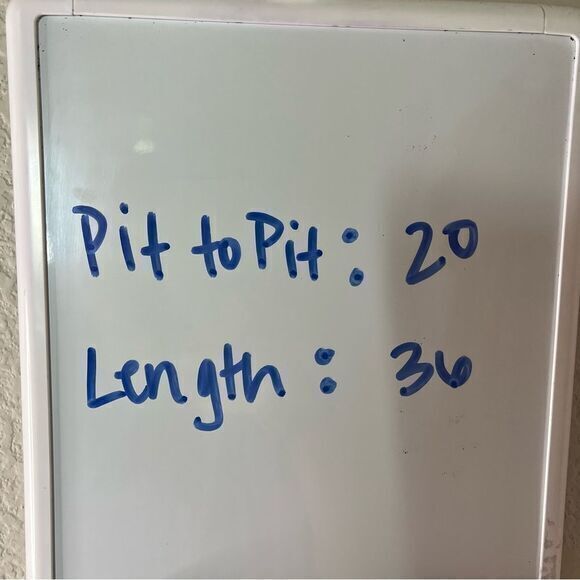 Pit to Pit: 20
Length: 36